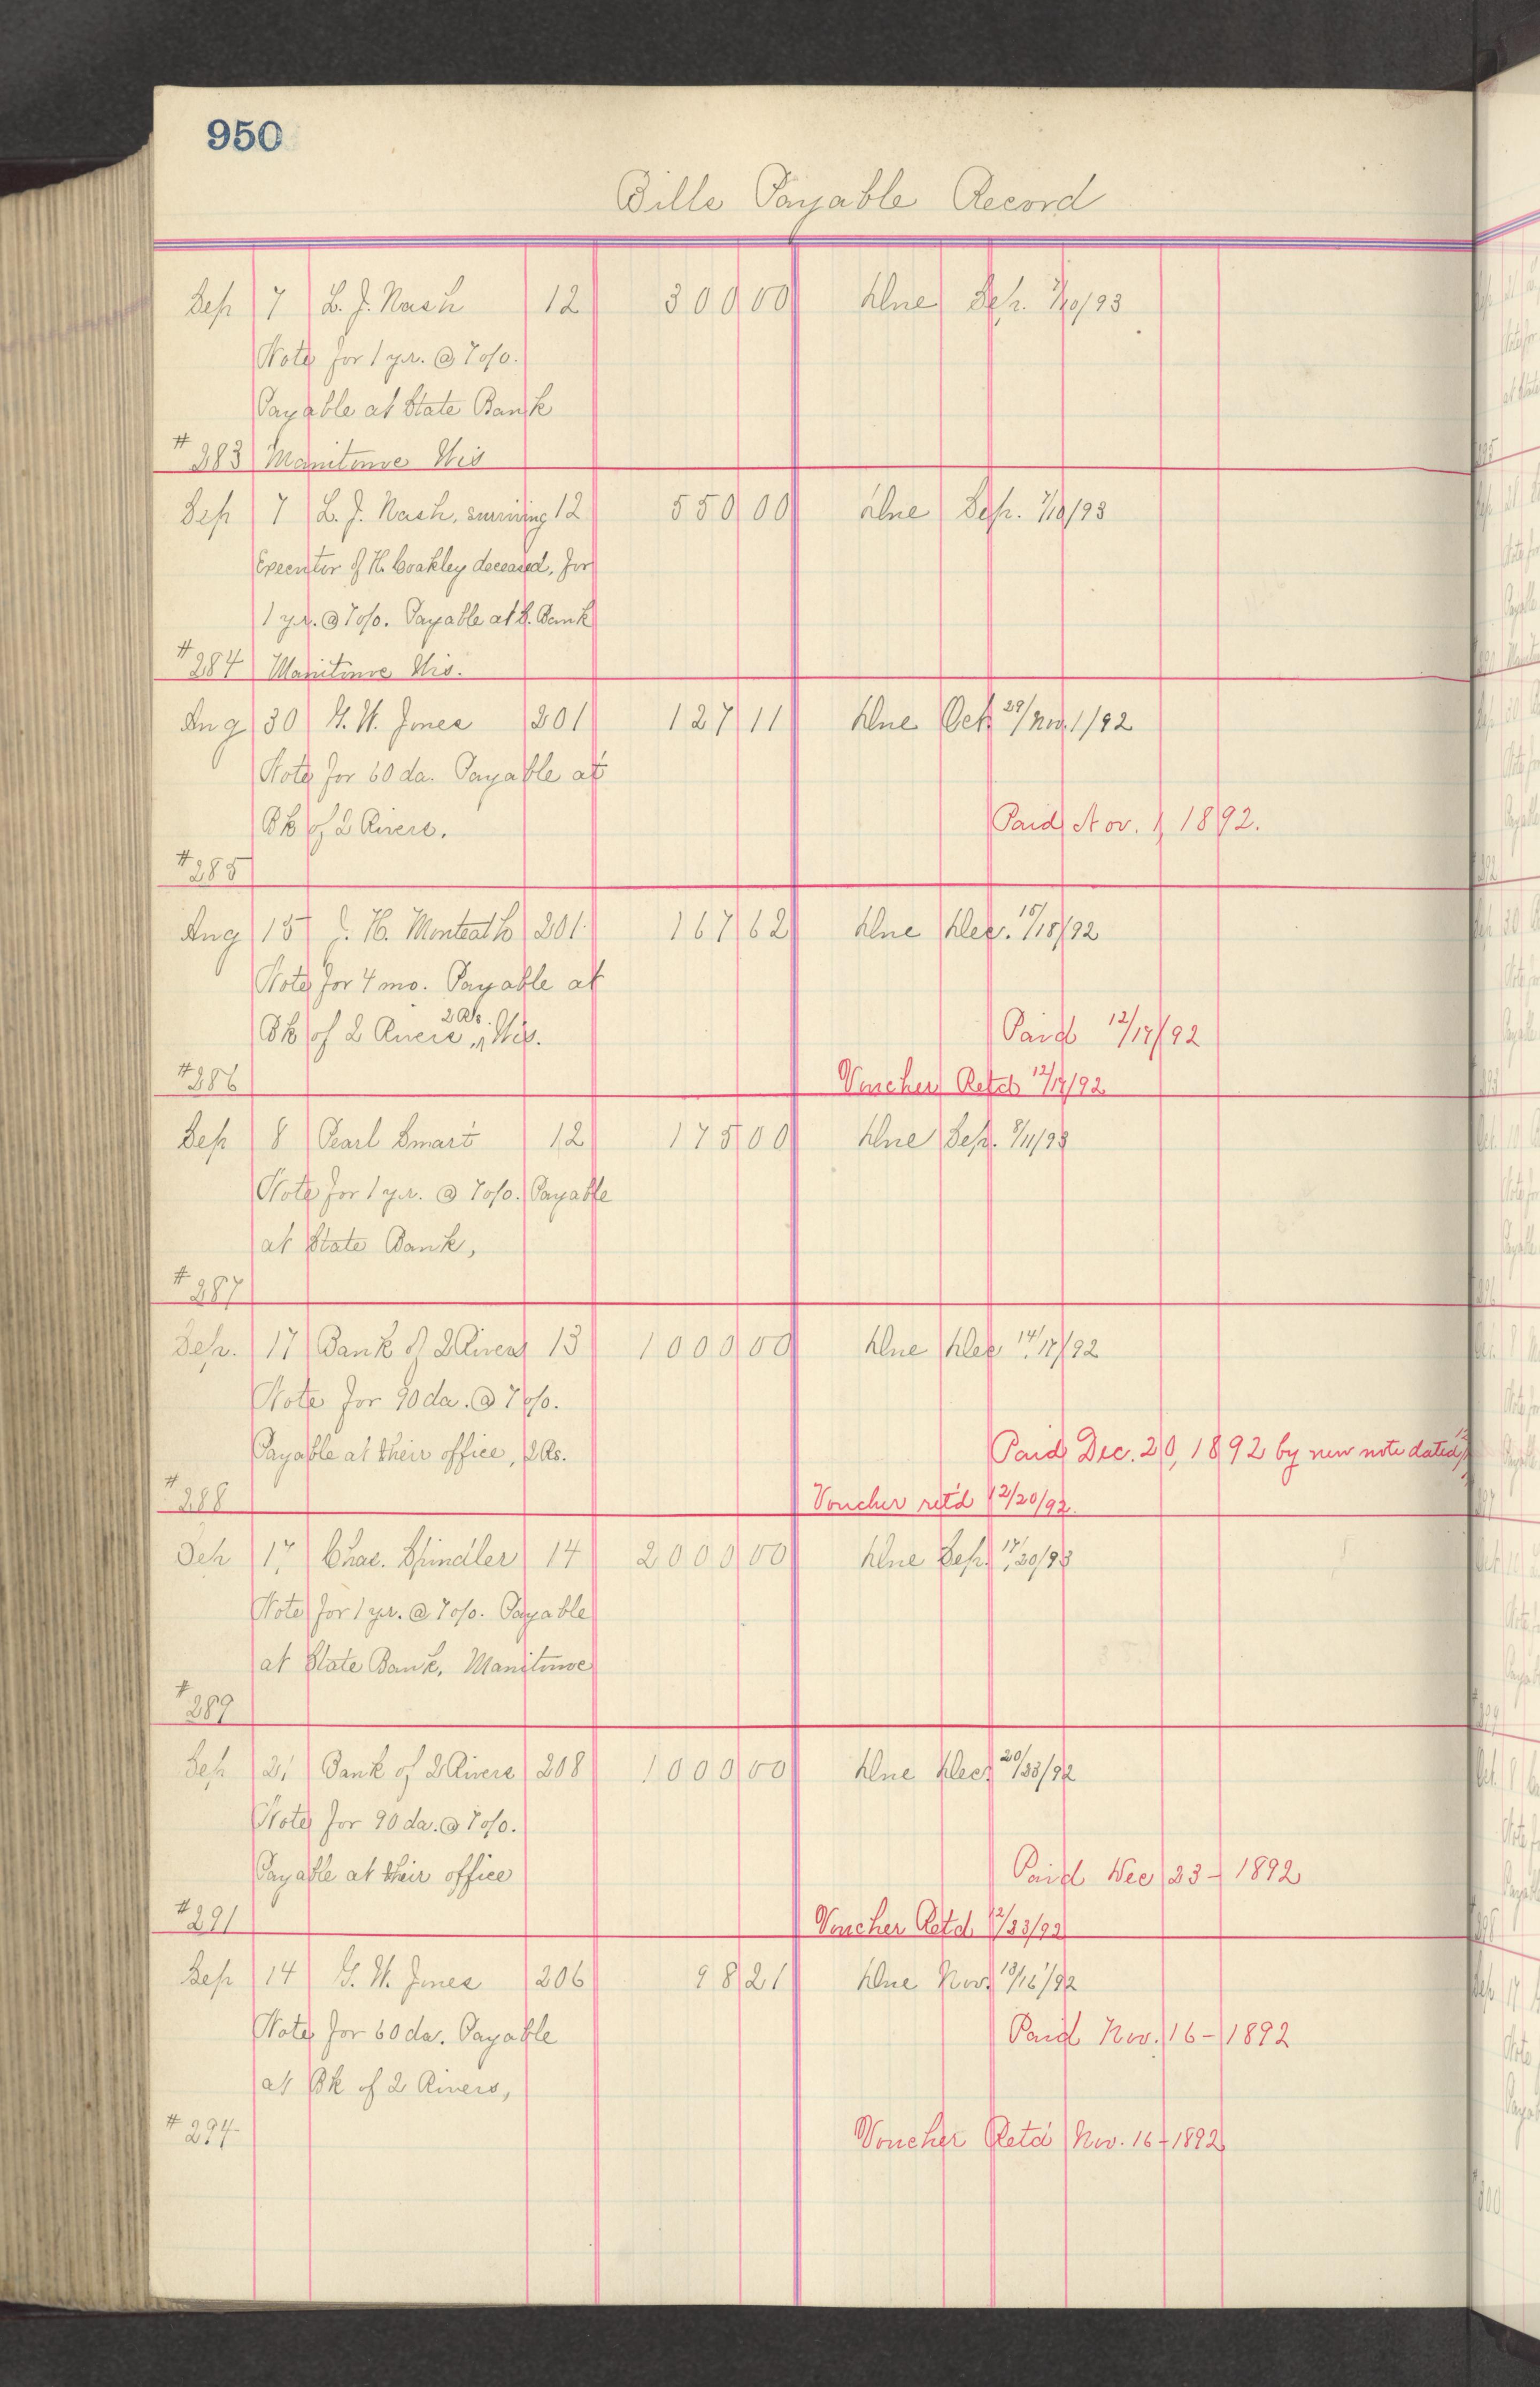 950
Bills Payable Record
Sep 7 L. J. Nash 12 300 00 Due Sep. 7/10/93
Note for 1 yr. @ 7 o/o.
Payable at State Bank
#283 Manitowoc Wis
Sep 7 L. J. Nash, surviving 12 550 00 Due Sep. 7/10/93
Executor of H. Coakley deceased, for
1 yr. @ 7 o/o. Payable at S. Bank
#284 Manitowoc Wis.
Aug 30 G. W. Jones 201 127 11 Due Oct 29/Nov. 1/92
Note for 60 da. Payable at
Bk of 2 Rivers. Paid Nov. 1 1892.
#285
Aug 15 J. H. Monteath 201 167 62 Due Dec. 15/18/92
Note for 4 mo. Payable at
Bk of 2 Rivers, 2 Rs. Wis. Paid 12/19/92
#286 Voucher Retd 12/19/92
Sep 8 Pearl Smart 12 175 00 Due Sep. 8/11/93
Note for 1 yr. @ 7 o/o. Payable
at State Bank,
#287
Sep. 17 Bank of 2 Rivers 13 1000 00 Due Dec 14/17/92
Note for 90 da. @ 7 o/o.
Payable at their office, 2 Rs. Paid Dec. 20, 1892 by new note dated
#288 Voucher ret'd 12/20/92.
Sep 17 Chas. Spindler 14 2000 00 Due Sep. 17/20/93
Note for 1 yr. @ 7 o/o. Payable
at State Bank, Manitowoc
#289
Sep 21 Bank of 2 Rivers 208 1000 00 Due Dec. 20/23/92
Note for 90 da. @ 7 o/o.
Payable at their office Paid Dec 23 - 1892
#291 Voucher Retd 12/23/92
Sep 14 G. W. Jones 206 98 21 Due Nov. 13/16/92
Note for 60 da. Payable Paid Nov. 16 - 1892
at Bk of 2 Rivers,
#294 Voucher Retd Nov. 16 - 1892